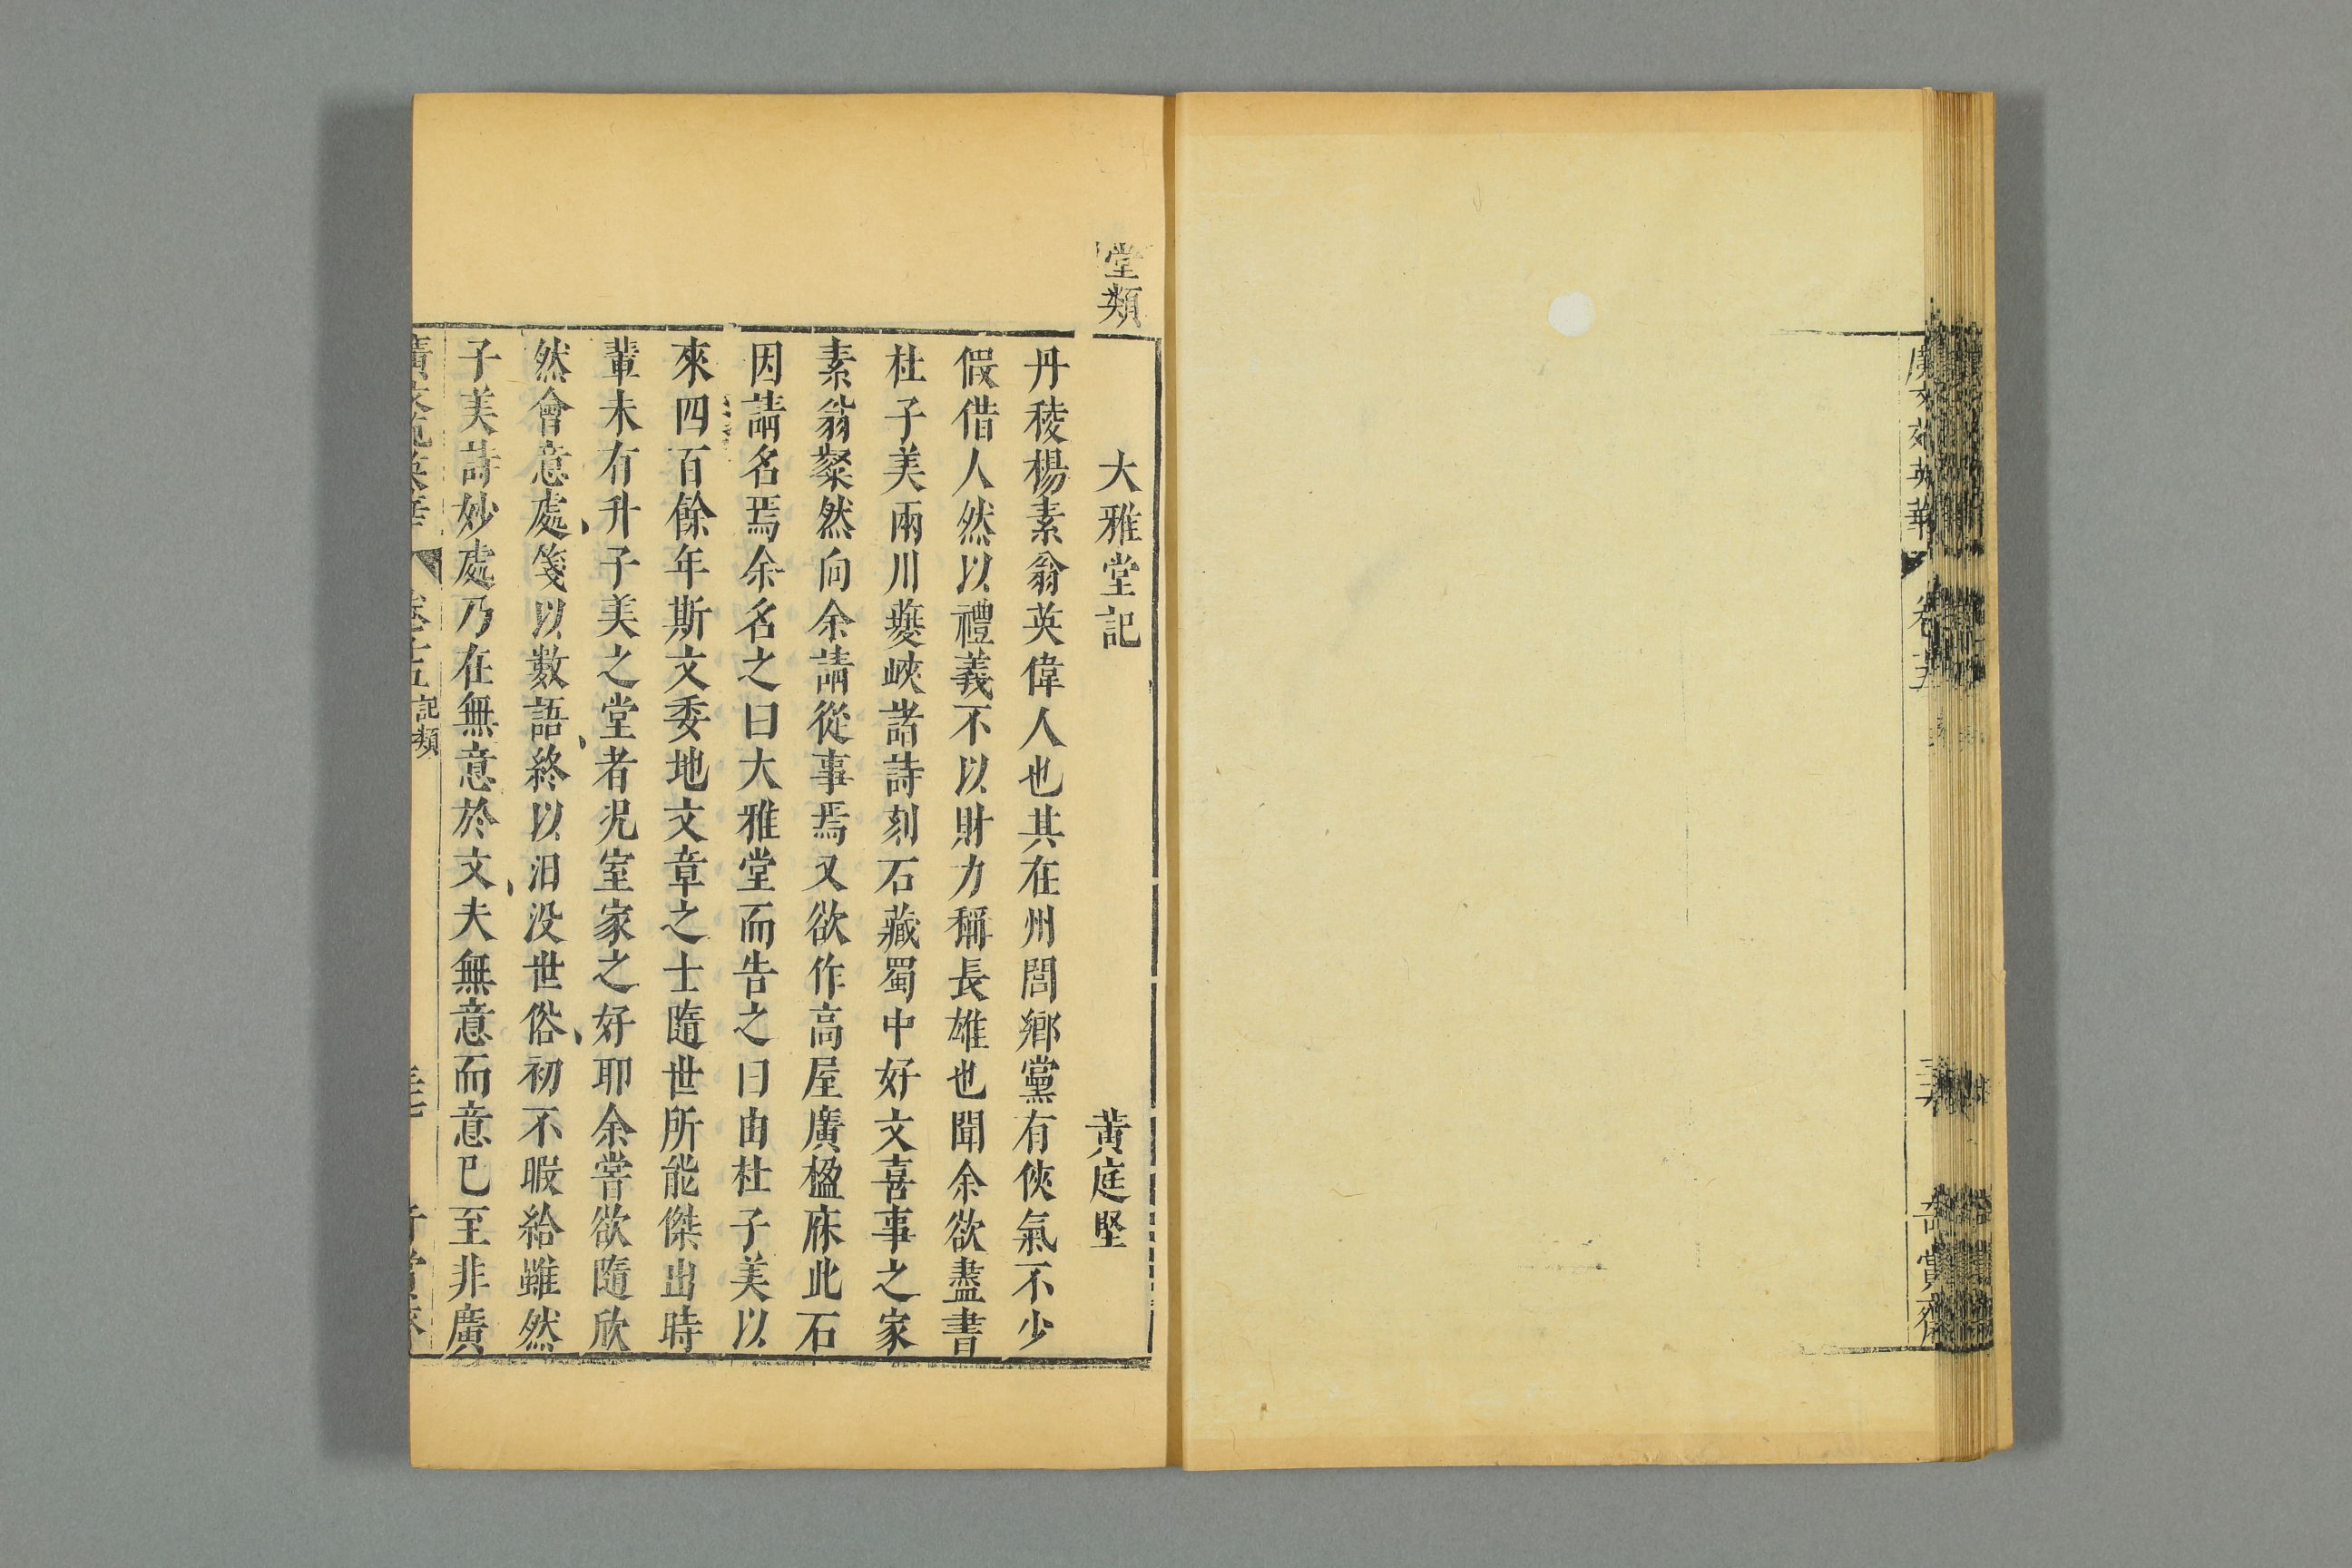 堂類
大雅堂記 黄庭堅
丹稜楊素翁英偉人也其在州閭鄉黨有俠氣不少
假借人然以禮義不以財力稱長雄也聞余欲盡書
杜子美兩川夔峽諸詩刻石藏蜀中好文喜事之家
素翁粲然向余請從事焉又欲作高屋廣楹庥此石
因請名焉余名之曰大雅堂而告之曰由杜子美以
來四百餘年斯文委地文章之士隨世所能傑出時
輩未有升子美之堂者况室家之好耶余嘗欲隨欣
然會意處箋以數語終以汨没世俗初不暇給雖然
子美詩妙處乃在無意於文夫無意而意已至非廣
記類